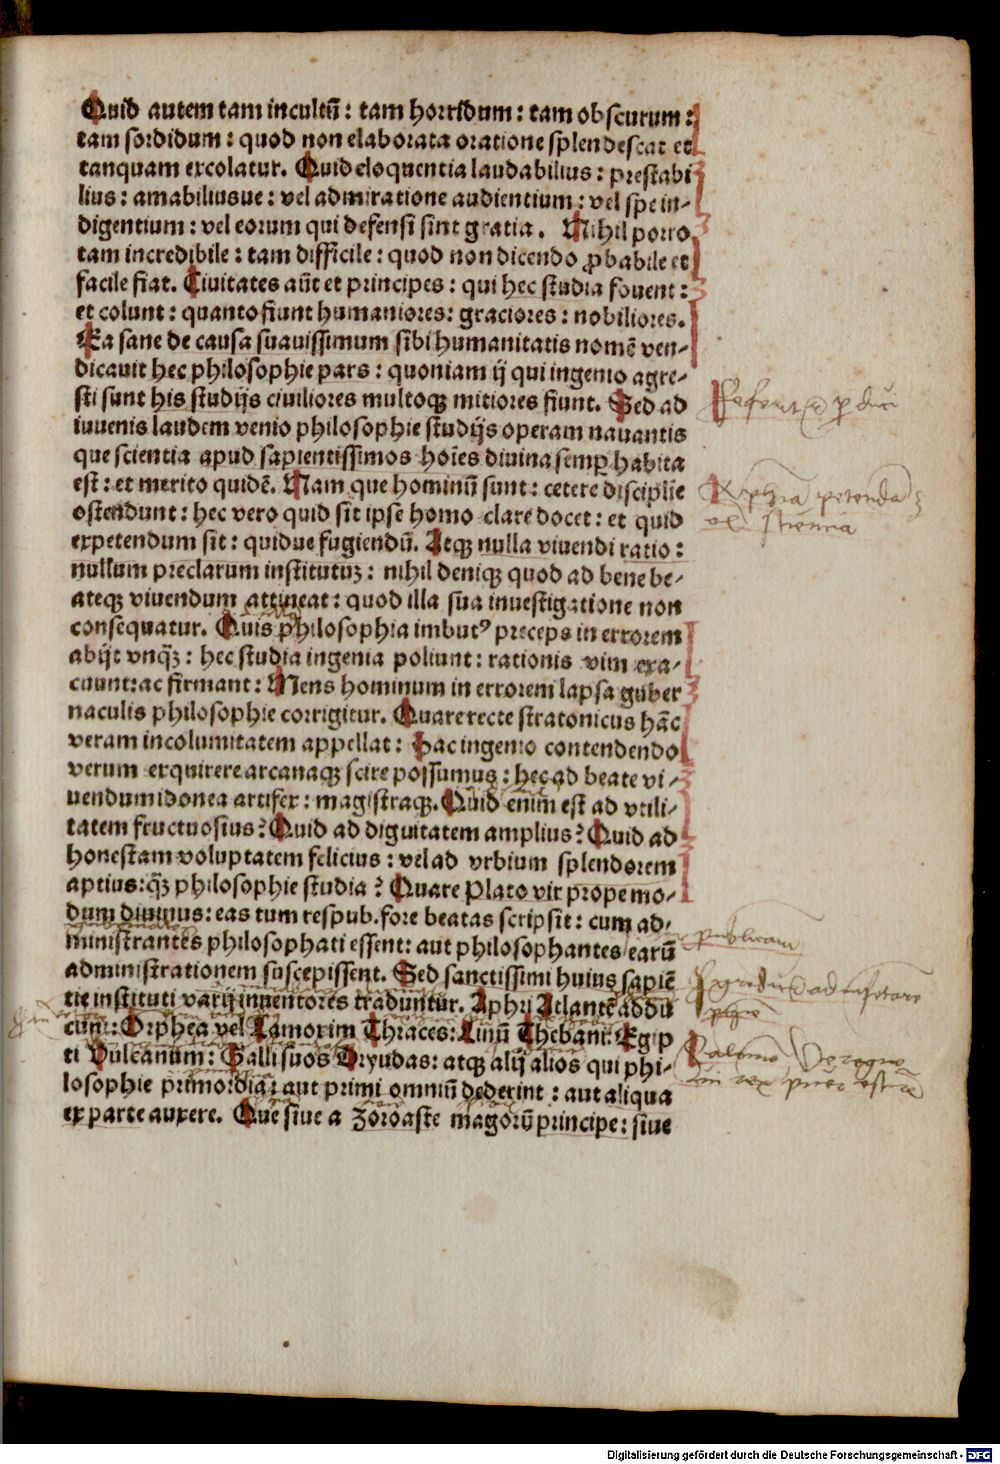 Quid autem tam incultū : tam horridum : tam obscurum :
tam sordidum : quod non elaborata oratione splendescat et
tanquam excolatur. Quid eloquentia laudabilius : prestabi
lius : amabiliusue : vel admiratione audientium : vel spe in-
digentium : vel eorum qui defensi sint gratia . Nihil porro
tam incredibile : tam difficile : quod non dicendo ꝓbabile et
facile fiat. Ciuitates aūt et principes : qui hec studia fouent :
et colunt : quanto fiunt humaniores : graciores : nobiliores.
Ea sane de causa suauissimum sibi humanitatis nomē ven-
dicauit hec philosophie pars : quoniam ij qui ingenio agre-
sti sunt his studijs ciuiliores multoqꝫ mitiores fiunt. Sed ad
iuuenis laudem venio philosophie studijs operam nauantis
que scientia apud sapientissimos hoīes diuina semꝑ habita
est : et merito quidē. Nam que hominū sunt : cetere disciplīe
ostendunt : hec vero quid sit ipse homo clare docet : et quid
expetendum sit : quidue fugiendū. Atqꝫ nulla viuendi ratio :
nullum preclarum institutuꝫ : nihil deniqꝫ quod ad bene be-
ateqꝫ viuendum attineat : quod illa sua inuestigatione non
consequatur. Quis philosophia imbutꝰ preceps in errorem
abijt vnqꝫ̄ : hec studia ingenia poliunt : rationis vim exa-
cuunt: ac firmant : Mens hominum in errorem lapsa guber
naculis philosophie corrigitur. Quare recte stratonicus hāc
veram incolumitatem appellat : Hac ingenio contendendo
verum exquirere arcanaqꝫ scire possumus : hec ad beate vi-
uendum idonea artifex : magistraqꝫ. Quid enim est ad vtili-
tatem fructuosius? Quid ad dignitatem amplius? Quid ad
honestam voluptatem felicius : vel ad vrbium splendorem
aptius: qꝫ̄ philosophie studia ? Quare Plato vir prope mo-
dum diuinus: eas tum respub. fore beatas scripsit : cum ad-
ministrantes philosophati essent: aut philosophantes earū
publicam
administrationem suscepissent. Sed sanctissimi huius sapiē
tie instituti varij inuentores traduntur. Aphri Atlantē addu
cunt : Orphea vel Zamorim Thraces: Linū Thebani: Egip
ti Vulcanum : Galli suos Dryudas: atqꝫ alij alios qui phi-
losophie primordia: aut primi omniū dederint : aut aliqua
ex parte auxere. Que siue a Zoroaste magorū principe: siue
Digitalisierung gefördert durch die Deutsche Forschungsgemeinschaft - DFG